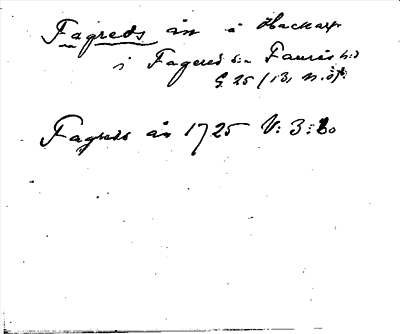 Fagreds ån å Häckarp
i Fagered s:n Faurås h:d
G. 25 / 13, n. ö.
Fagreds ån 1725 V: 3: 80